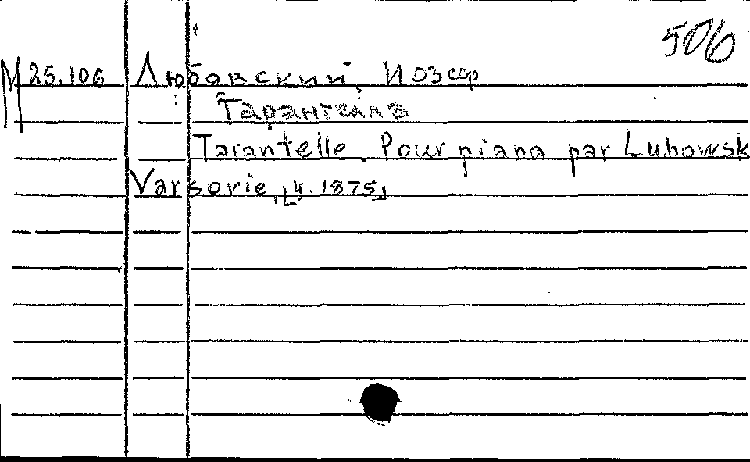 506
М 25.106 Любовский, Иозеф
Тарантелль
Tarantelle. Pour piano par Lubowsk
Varsovie, [ч. 1875]